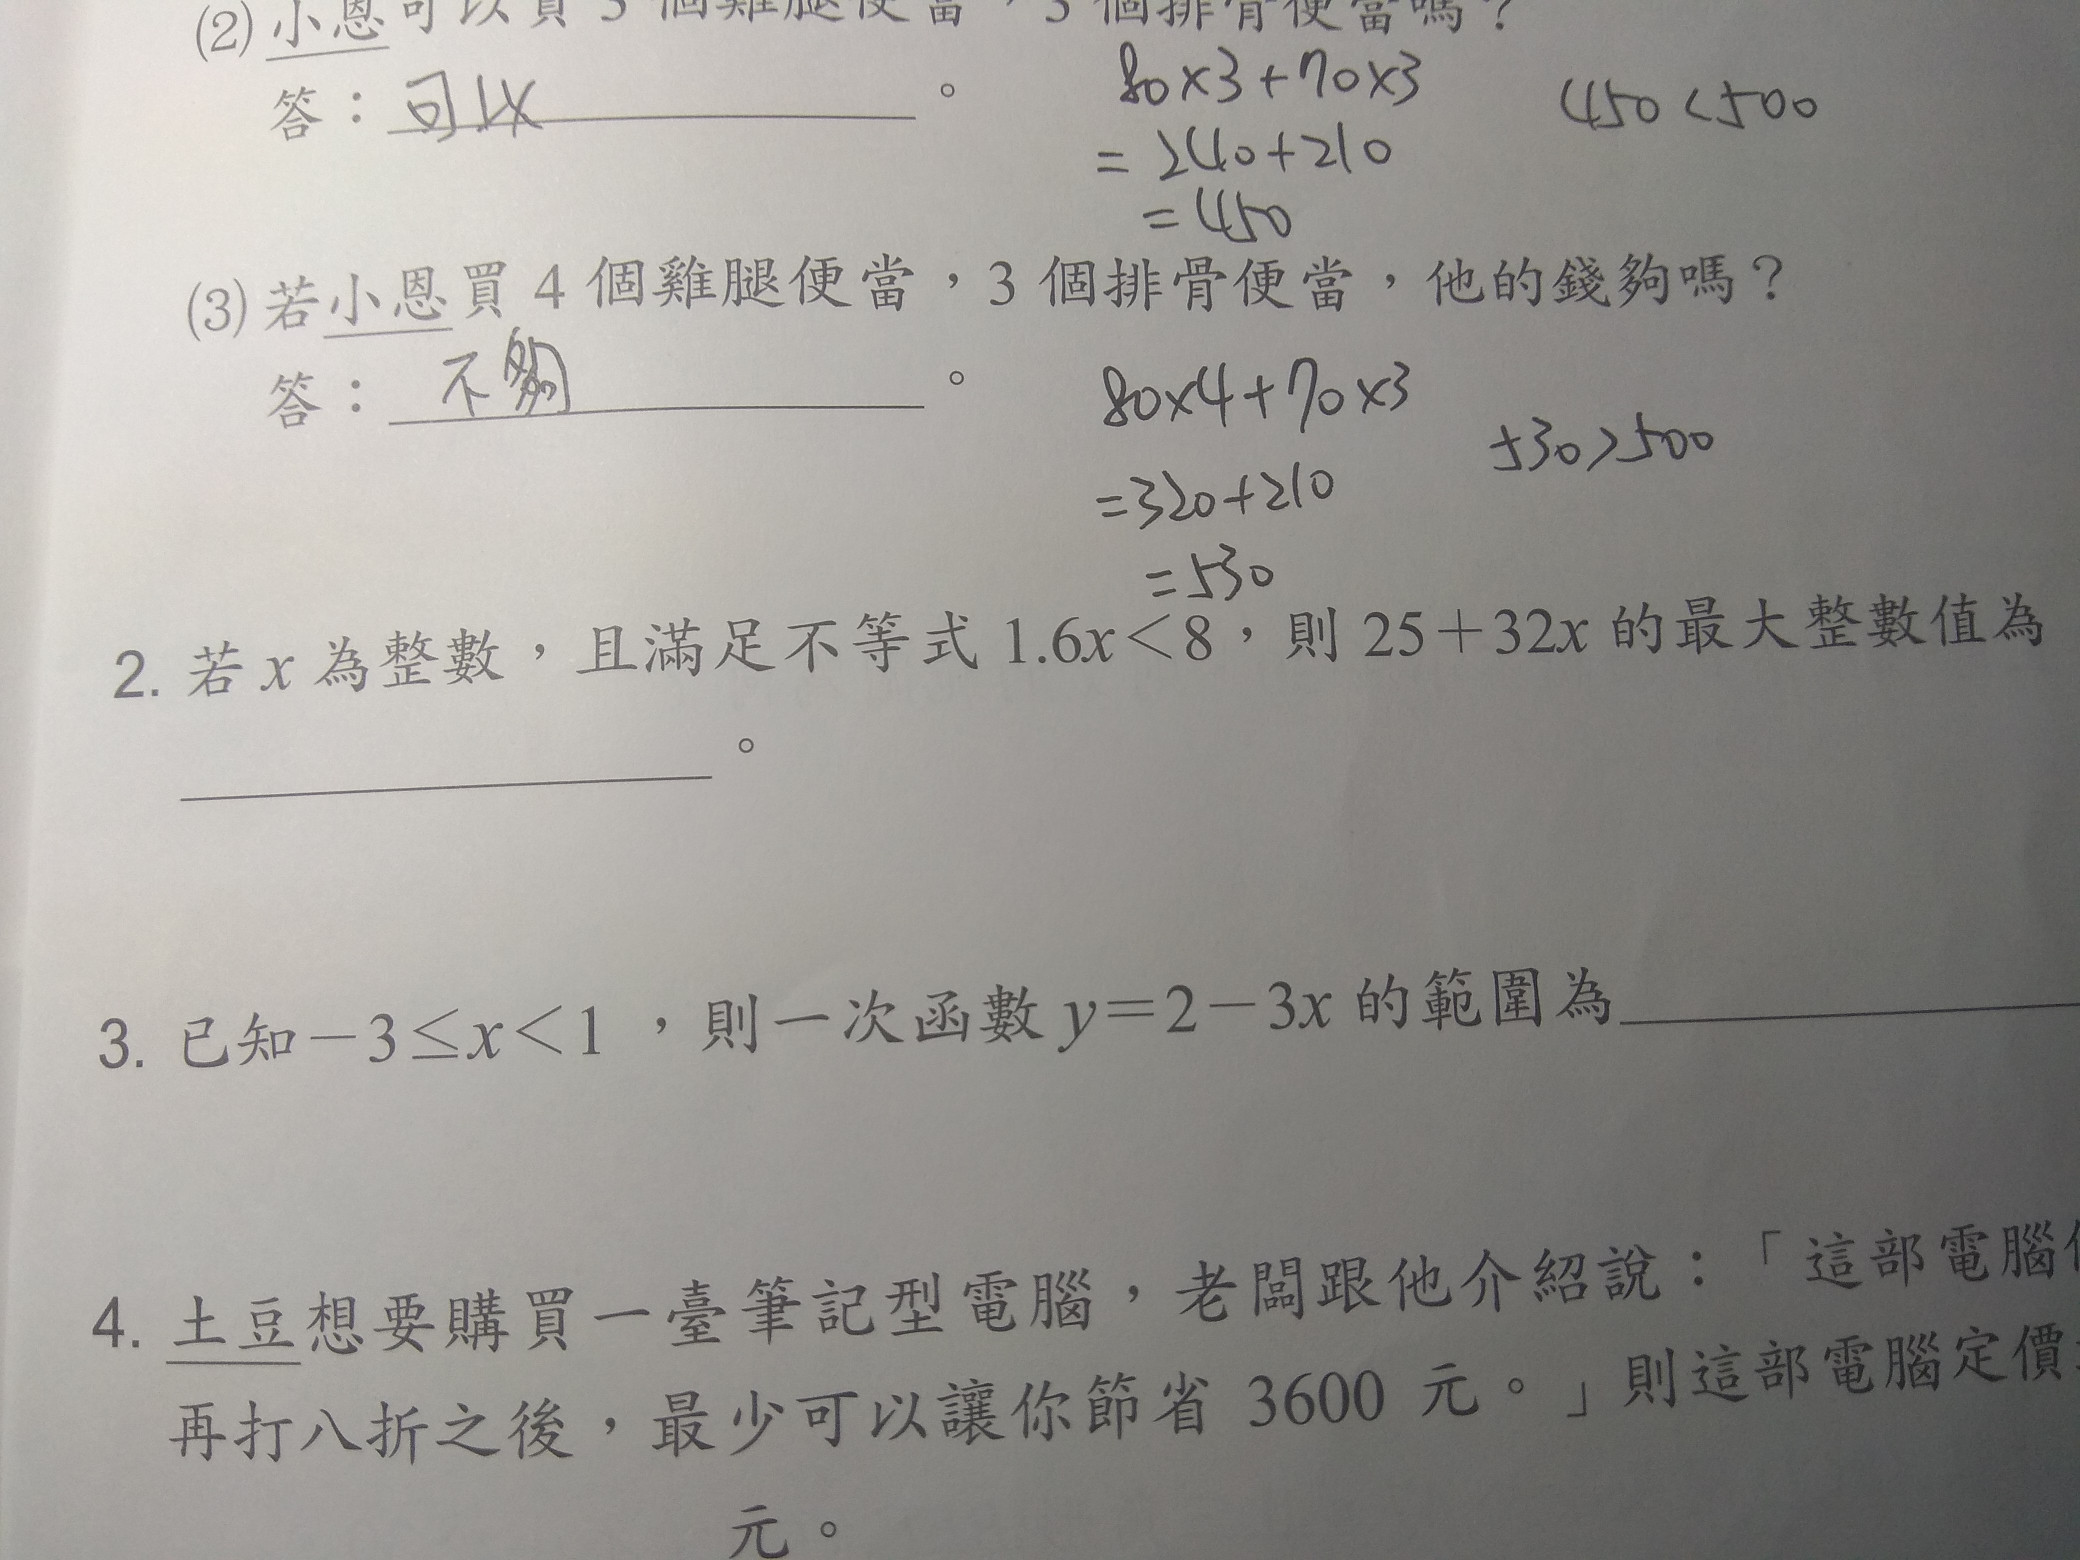 (2) 小恩可以買 3 個雞腿便當，3 個排骨便當嗎？
答：可以。
80×3+70×3
=240+210
=450
450<500
(3) 若小恩買 4 個雞腿便當，3 個排骨便當，他的錢夠嗎？
答：不夠。
80×4+70×3
=320+210
=530
530>500
2. 若 x 為整數，且滿足不等式 1.6x＜8，則 25＋32x 的最大整數值為
。
3. 已知－3≤x＜1，則一次函數 y＝2－3x 的範圍為
4. 土豆想要購買一臺筆記型電腦，老闆跟他介紹說：「這部電腦
再打八折之後，最少可以讓你節省 3600 元。」則這部電腦定價
元。